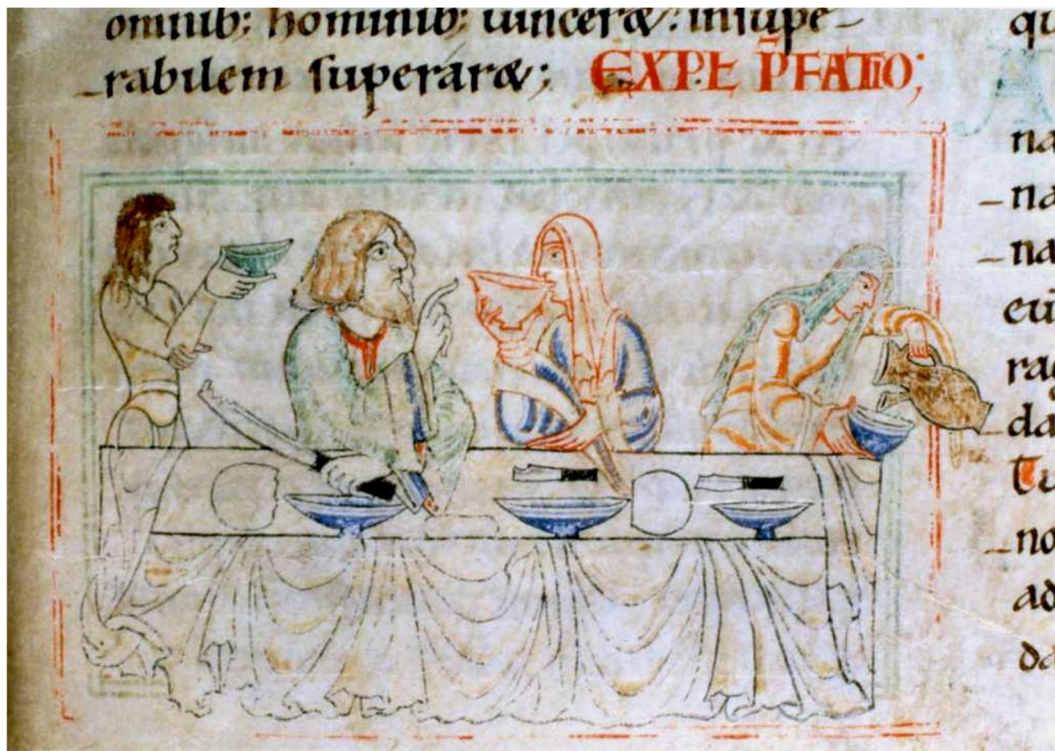 omnib; hominib; uinceræ: insupe-
rabilem superaræ; EXP.E P̄FATIO;
qu
A
na
na
na
eu
rag
da
Tu
no
ad
da